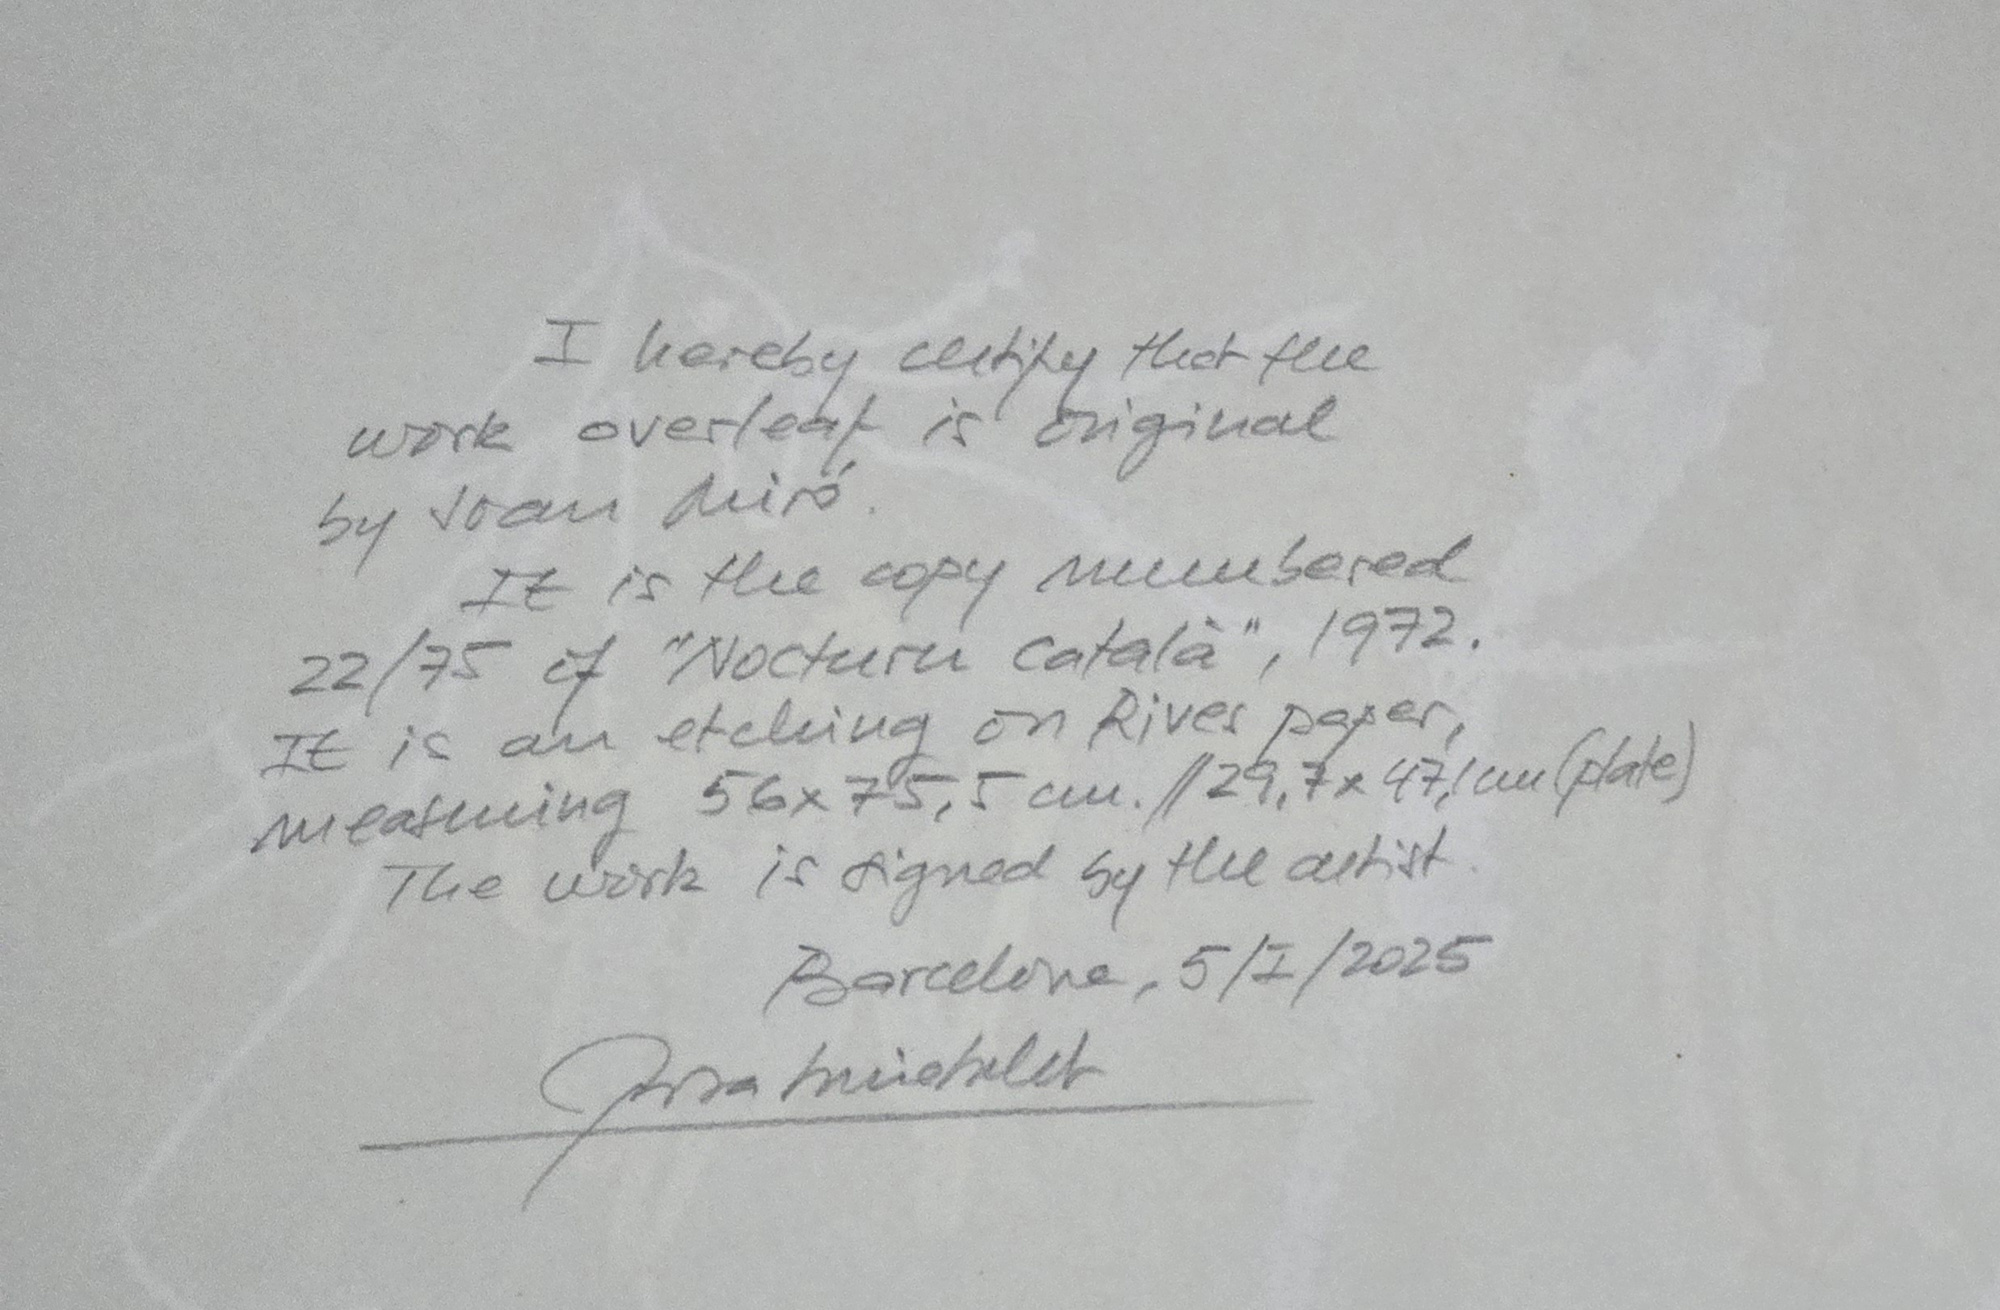 I hereby certify that the
work overleaf is original
by Joan Miró.
It is the copy numbered
22/75 of "Nocturn català", 1972.
It is an etching on Rives paper,
measuring 56x75,5 cm. // 29,7x47,1 cm (plate)
The work is signed by the artist.
Barcelona, 5/I/2025